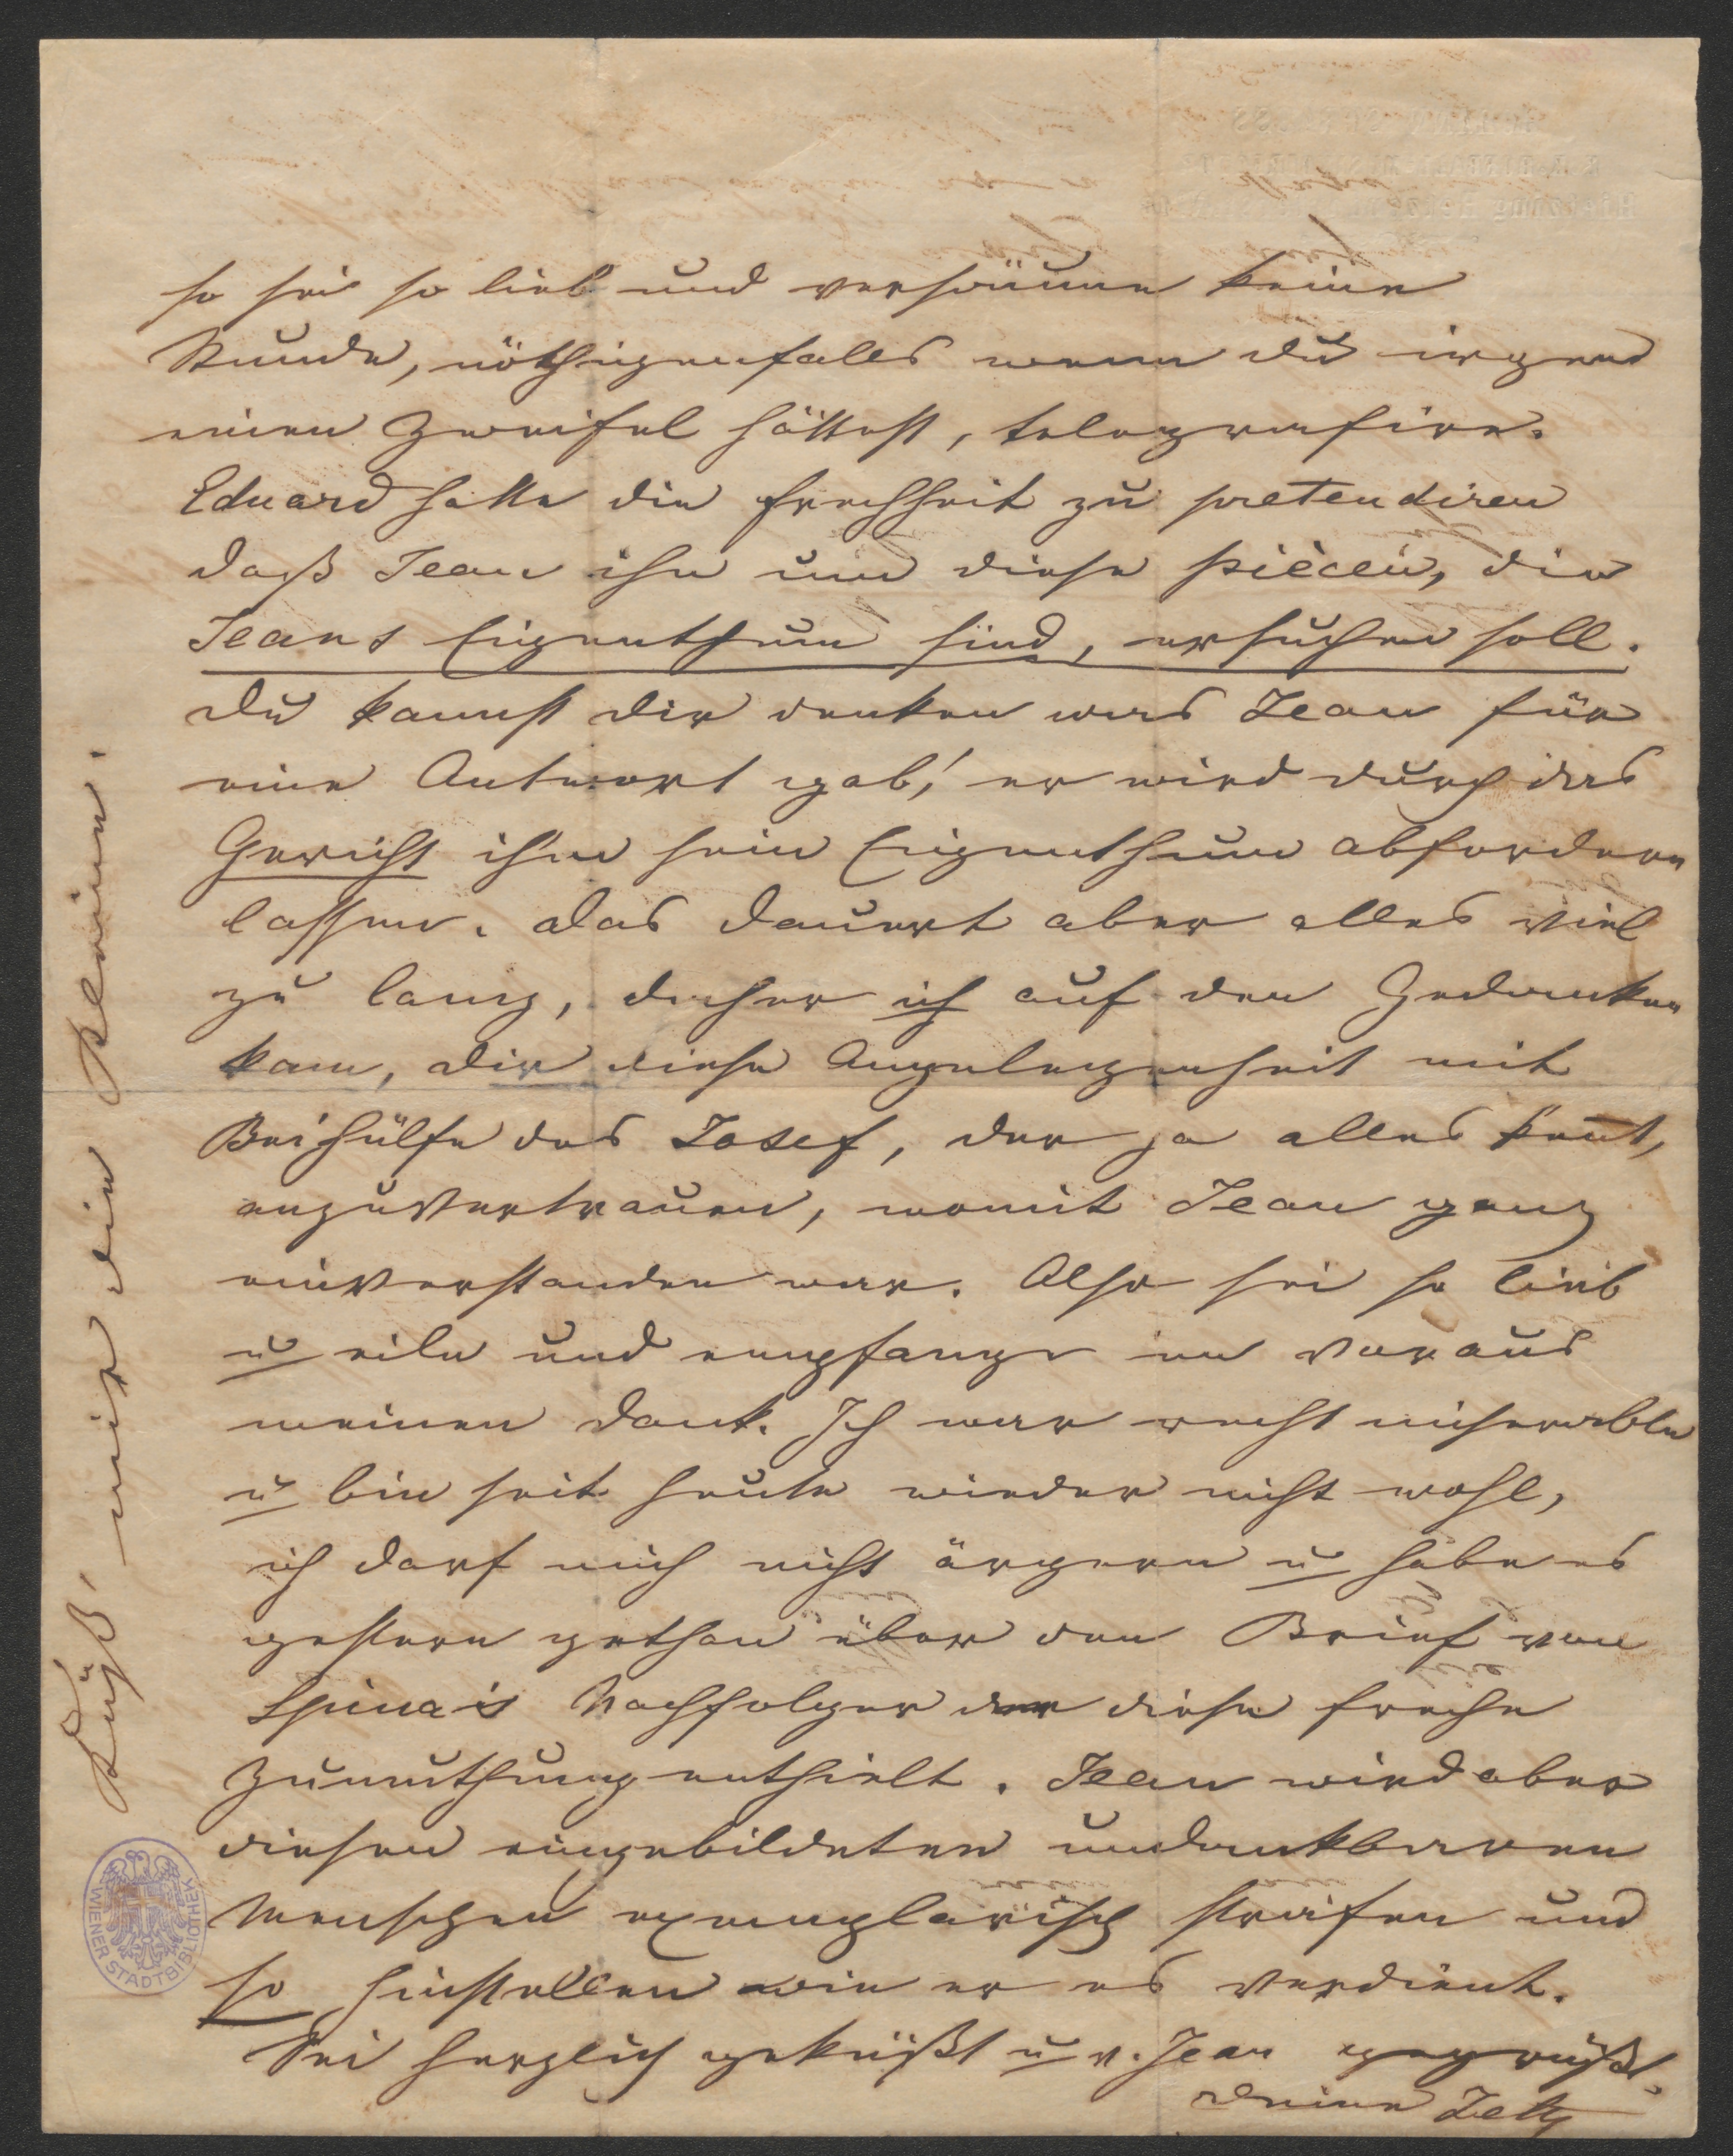 so sei so lieb und versäume keine
Stunde, nöthigenfalls wenn du irgend
einen Zweifel hättest, telegrafire.
Eduard hatte die Frechheit zu pretendiren
daß Jean ihn um diese piècen, die
Jeans Eigenthum sind, ersuchen soll.
Du kannst dir denken was Jean für
eine Antwort gab! er wird durch das
Gericht ihm sein Eigenthum abfordern
lassen. Das dauert aber alles viel
zu lang, daher ich auf den Gedanken
kam, dir diese Angelegenheit mit
Beihülfe des Josef, der ja alles kent,
anzuvertrauen, womit Jean ganz
einverstanden war. Also sei so lieb
u eile und empfange im voraus
meinen Dank. Ich war recht miserable
u bin seit heute wieder nicht wohl,
ich darf mich nicht ärgern u habe es
gestern gethan über den Brief von
Spina's Nachfolger der diese freche
Zumuthung enthielt. Jean wird aber
diesen eingebildeten undankbaren
Menschen exemplarisch strafen und
so hinstellen wie er es verdient.
Sei herzlich geküßt u v. Jean gegrüßt.
Deine Jetty
Küß' mir die Kleinen.
WIENER STADTBIBLIOTHEK